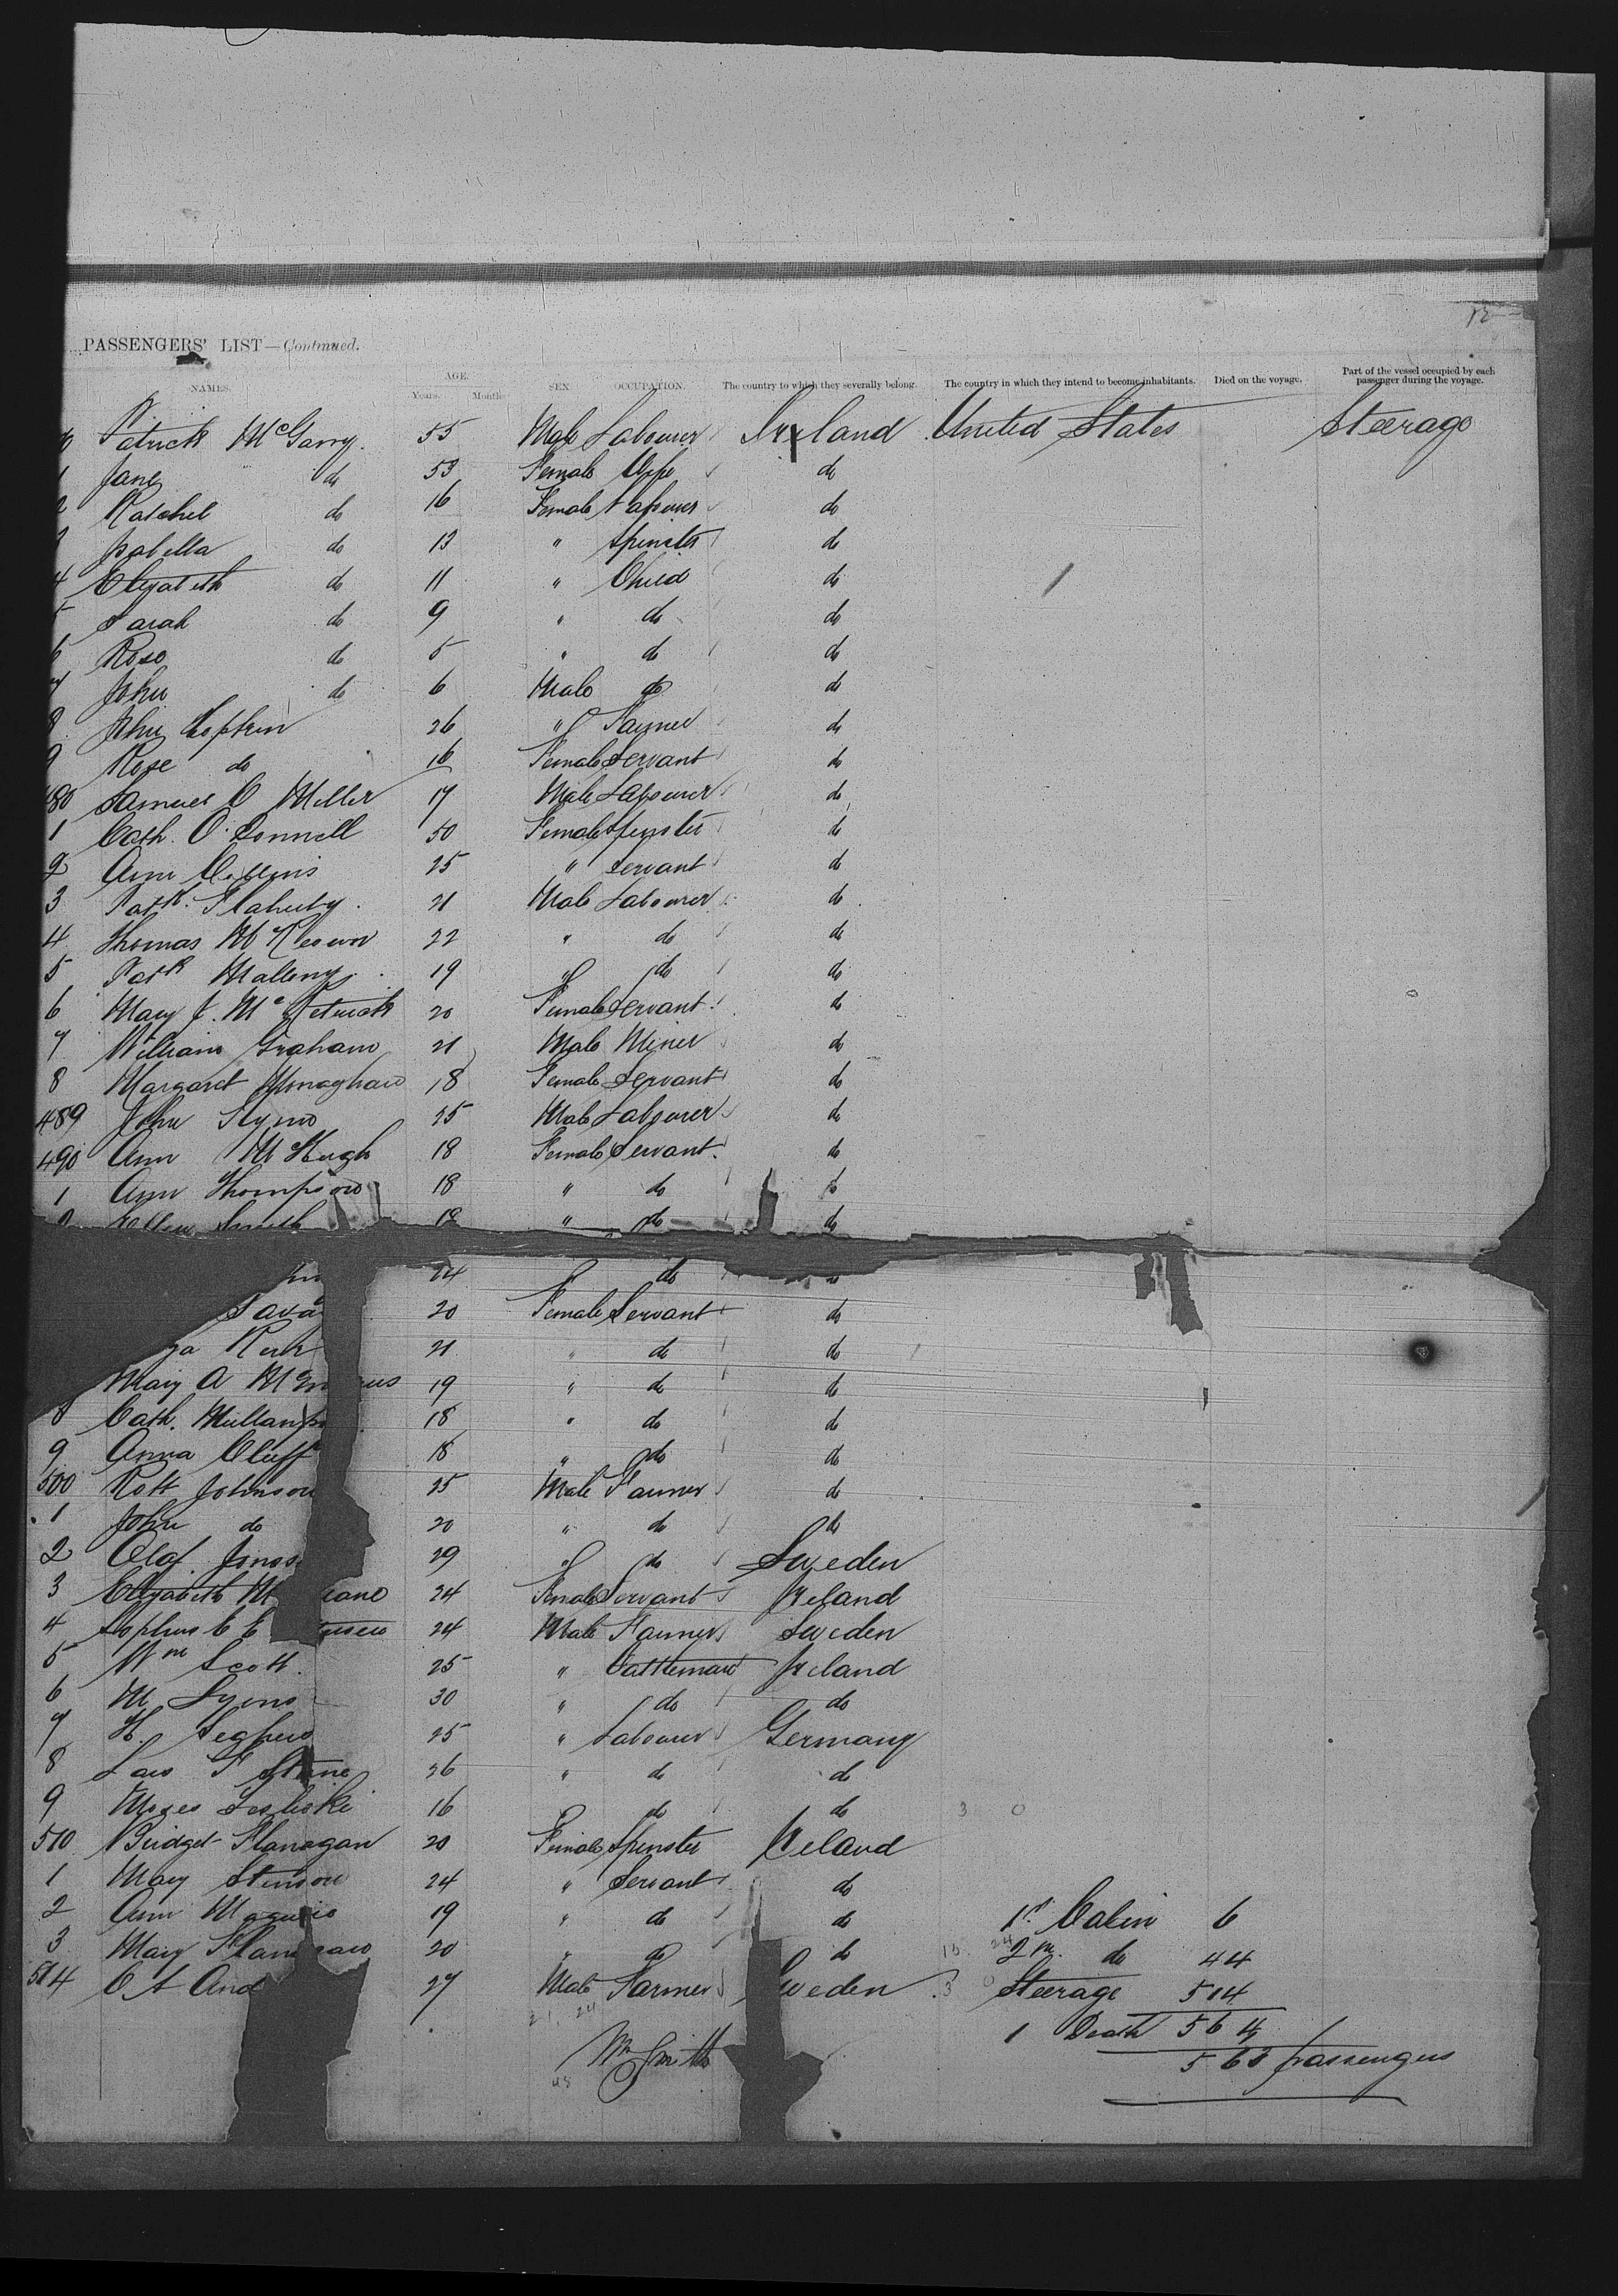 12
PASSENGERS' LIST—Continued.
NAMES. AGE. Years. Months. SEX OCCUPATION. The country to which they severally belong. The country in which they intend to become inhabitants. Died on the voyage. Part of the vessel occupied by each passenger during the voyage.
0 Patrick McGarry. 55 Male Labourer Ireland United States Steerage
1 Jane do 53 Female Wife do
2 Ratchel do 16 Female Labourer do
3 Isabella do 13 " Spinster do
4 Elizabeth do 11 " Child do
5 Sarah do 9 " do do
6 Rose do 5 " do do
7 John do 6 Male do do
8 John Hopkin 26 " Farmer do
9 Rose do 16 Female Servant do
480 Samuel C Miller 17 Male Labourer do
1 Cath. O'Connell 50 Female Spinster do
2 Ann Collins 25 " Servant do
3 Patk. Flaherty. 21 Male Labourer do
4 Thomas McKeown 22 " do do
5 Patk Mallony. 19 " do do
6 Mary J. Mc 20 Female Servant do
7 William Graham 21 Male Miner do
8 Margaret Monaghan 18 Female Servant do
489 John Flynn 25 Male Labourer do
490 Ann McHugh 18 Female Servant. do
1 Ann Thompson 18 " do do
2 Ellen Smith 18 " do do
24 " do do
Sava 20 Female Servant do
21 " do do
Mary A Mc 19 " do do
8 Cath. 18 " do do
9 Anna Cluff 18 " do do
500 Robt Johnson 25 Male Farmer do
1 John do 20 " do do
2 Olof Jonss 29 " do Sweden
3 Elizabeth M 24 Female Servant Ireland
4 24 Male Farmer Sweden
5 Wm Scott. 25 " Cattleman Ireland
6 M Lyons 30 " do do
7 H. 25 " Labourer Germany
8 26 " do do
9 Moses 16 do do
510 Bridget Flanagan 20 Female Spinster Ireland
1 Mary Stinson 24 " Servant do
2 Ann Maguire 19 " do do 1st Cabin 6
3 Mary Flan 20 " do do 2nd do 44
514 C A And 27 Male Farmer Sweden Steerage 514
1 Death 564
Wm Smith 563 passengers